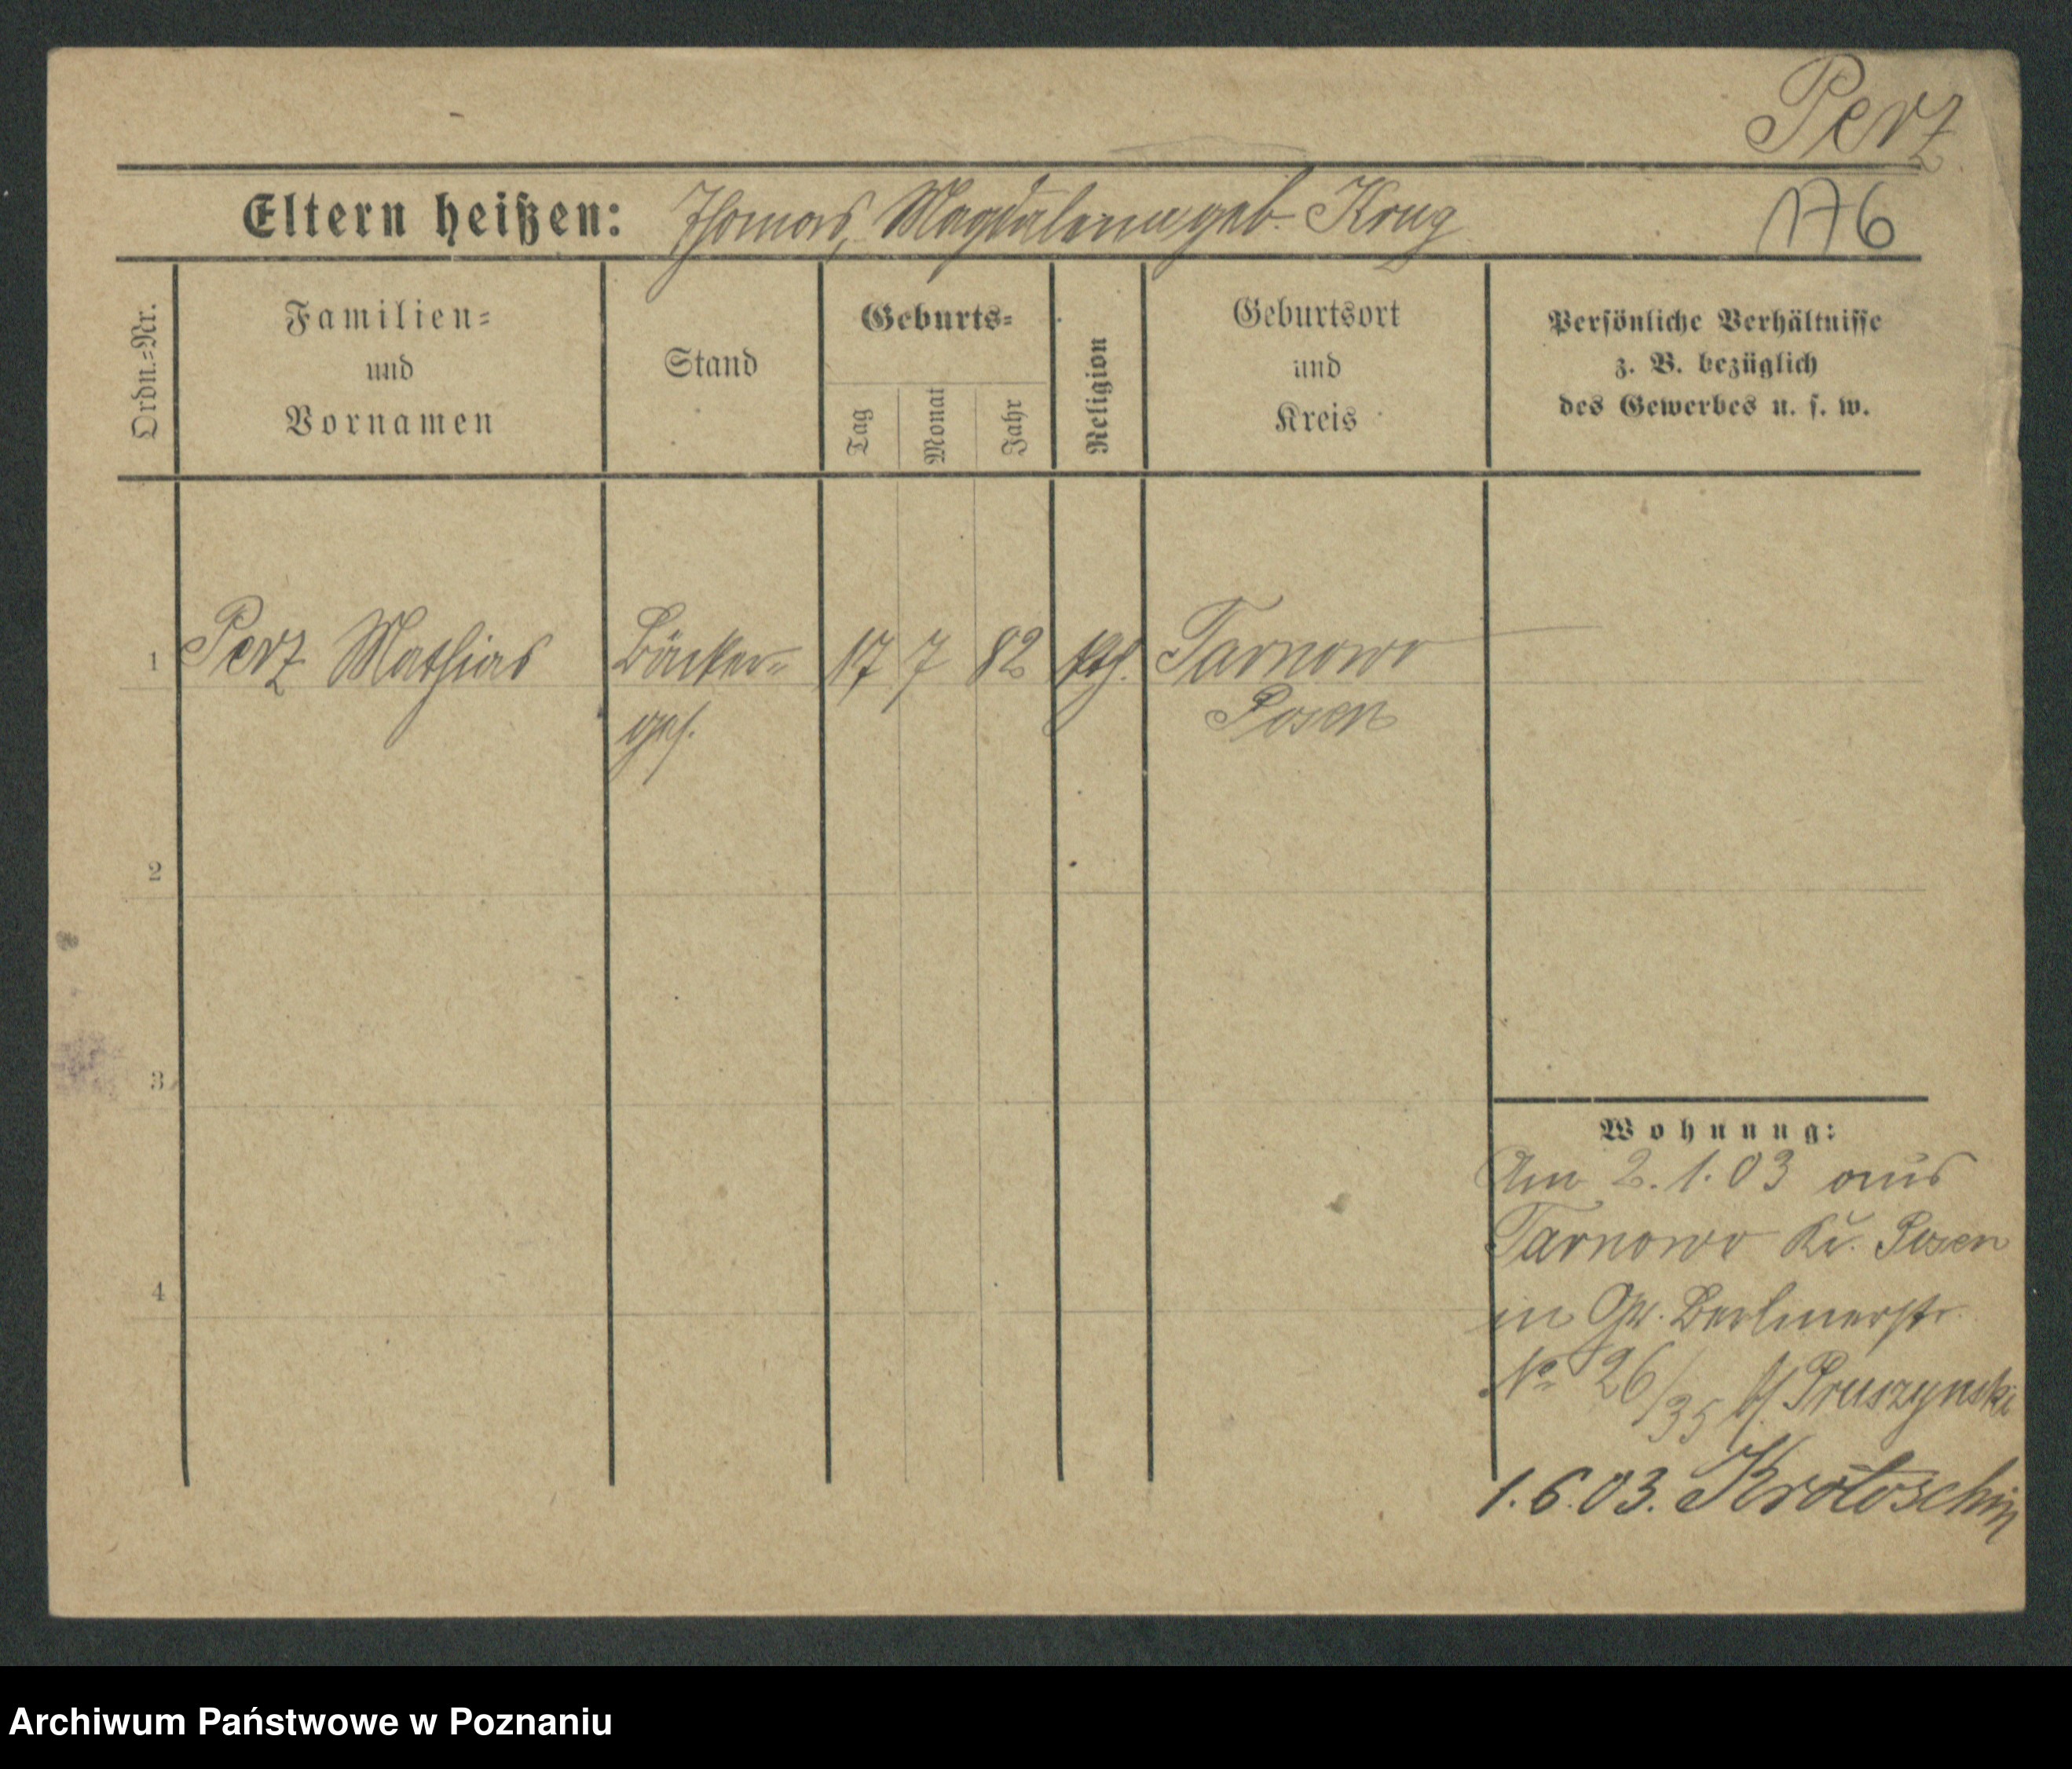 Perz
176
Eltern heißen: Thomas, Magdalena geb. Krug
Ordn.=Nr.
Familien=
und
Vornamen
Stand
Geburts=
Tag
Monat
Jahr
Religion
Geburtsort
und
Kreis
Persönliche Verhältnisse
z. B. bezüglich
des Gewerbes u. s. w.
1 Perz Mathias Bäcker= 17 7 82 kth. Tarnowo
ges. Posen
2
3
4
Wohnung:
Am 2.1.03 aus
Tarnowo Kr. Posen
in Gr. Berlinerstr.
No 26/35 b/ Pruszynski
1.6.03. Krotoschin
Archiwum Państwowe w Poznaniu